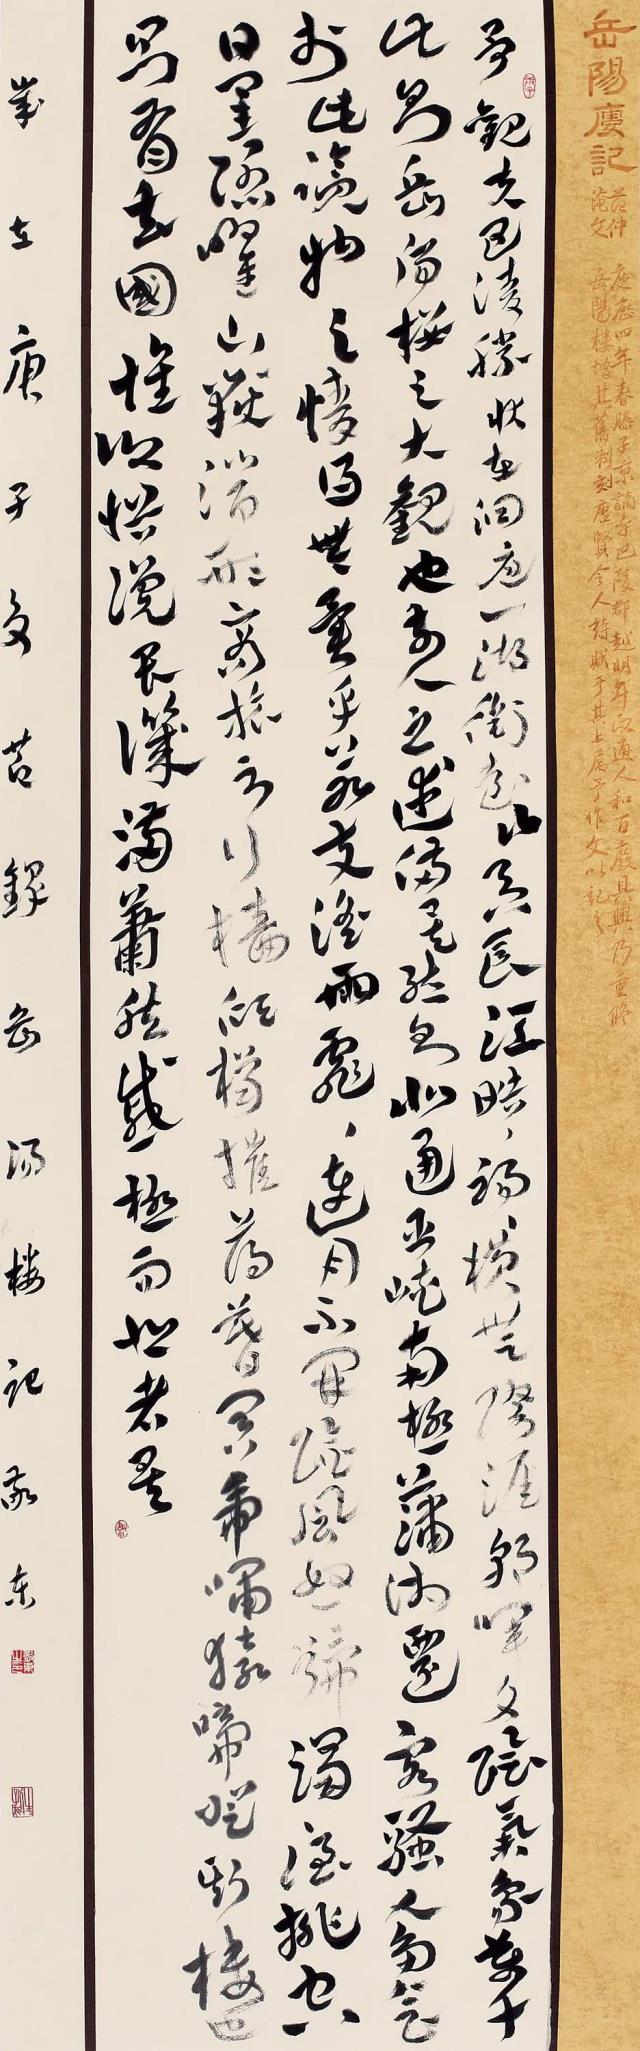 岳陽廔記
范仲淹文
慶歷四年春滕子京謫守巴陵郡越明年政通人和百廢具興乃重修
岳陽樓增其舊制刻唐賢今人詩賦于其上屬予作文以記之
予觀夫巴陵勝狀在洞庭一湖銜遠山吞長江浩浩湯湯橫無際涯朝暉夕陰氣象萬千
此則岳陽樓之大觀也前人之述備矣然則北通巫峽南極瀟湘遷客騷人多會
於此覽物之情得無異乎若夫淫雨霏霏連月不開陰風怒號濁浪排空
日星隱曜山嶽潛形商旅不行檣傾楫摧薄暮冥冥虎嘯猿啼登斯樓也
則有去國懷鄉憂讒畏譏滿蕭然感極而悲者矣
歲在庚子夏節錄岳陽樓記敬東